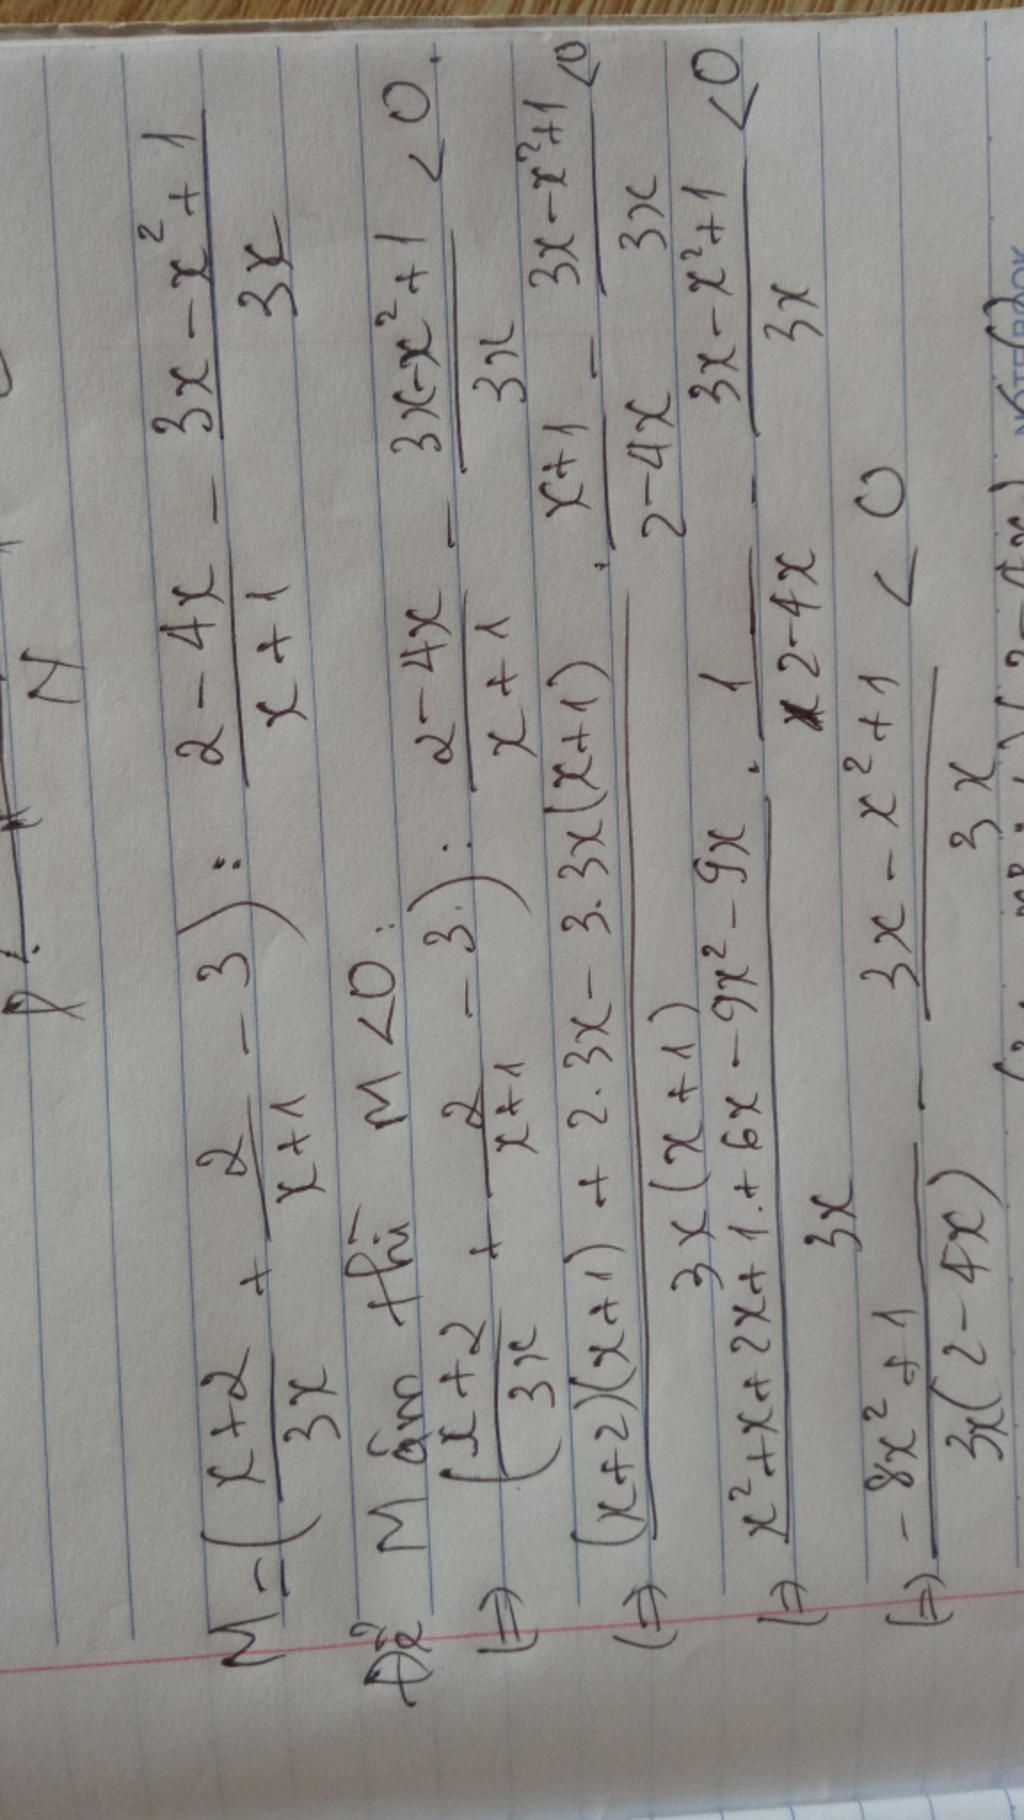 P! N
M = ( x+2 / 3x + 2 / x+1 - 3 ) : 2-4x / x+1 - 3x-x²+1 / 3x
Để M âm thì M <0.
(=) ( x+2 / 3x + 2 / x+1 - 3 ) : 2-4x / x+1 - 3x-x²+1 / 3x < 0.
(=) (x+2)(x+1) + 2.3x - 3.3x(x+1) / 3x(x+1) . x+1 / 2-4x - 3x-x²+1 / 3x <0
(=) x²+x+2x+1+6x-9x²-9x / 3x . 1 / 2-4x - 3x-x²+1 / 3x <0
(=) -8x²+1 / 3x(2-4x) - 3x-x²+1 / 3x < 0
NOTEBOOK